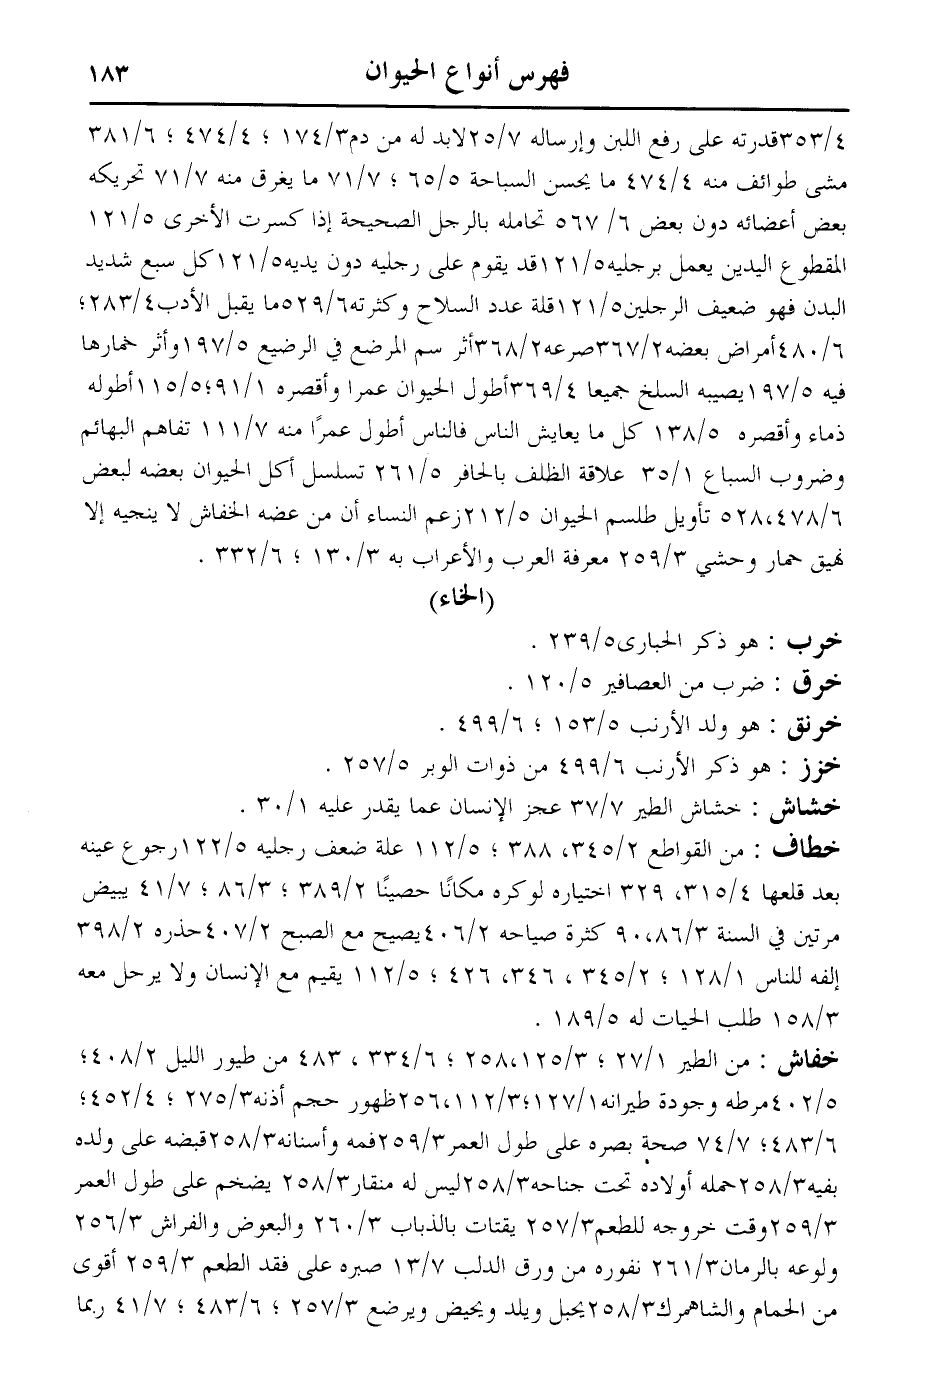 فهرس أنواع الحيوان ١٨٣
٣٥٣/٤قدرته على رفع اللبن وإرساله ٢٥/٧لابد له من دم١٧٤/٣ ؛ ٤٧٤/٤ ؛ ٣٨١/٦
مشى طوائف منه ٤٧٤/٤ ما يحسن السباحة ٦٥/٥ ؛ ٧١/٧ ما يغرق منه ٧١/٧ تحريكه
بعض أعضائه دون بعض ٦/ ٥٦٧ تحامله بالرجل الصحيحة إذا كسرت الأخرى ١٢١/٥
المقطوع اليدين يعمل برجليه١٢١/٥قد يقوم على رجليه دون يديه١٢١/٥كل سبع شديد
البدن فهو ضعيف الرجلين١٢١/٥قلة عدد السلاح وكثرته٥٢٩/٦ما يقبل الأدب٢٨٣/٤؛
٤٨٠/٦أمراض بعضه٣٦٧/٢صرعه٣٦٨/٢أثر سم المرضع في الرضيع ١٩٧/٥وأثر خمارها
فيه ١٩٧/٥يصيبه السلخ جميعا ٣٦٩/٤أطول الحيوان عمرا وأقصره ٩١/١؛١١٥/٥أطوله
ذماء وأقصره ١٣٨/٥ كل ما يعايش الناس فالناس أطول عمرًا منه ١١١/٧ تفاهم البهائم
وضروب السباع ٣٥/١ علاقة الظلف بالحافر ٢٦١/٥ تسلسل أكل الحيوان بعضه لبعض
٥٢٨،٤٧٨/٦ تأويل طلسم الحيوان ٢١٢/٥زعم النساء أن من عضه الخفاش لا ينجيه إلا
نهيق حمار وحشي ٢٥٩/٣ معرفة العرب والأعراب به ١٣٠/٣ ؛ ٣٣٢/٦ .
(الخاء)
خرب : هو ذكر الحبارى٢٣٩/٥ .
خرق : ضرب من العصافير ١٢٠/٥ .
خرنق : هو ولد الأرنب ١٥٣/٥ ؛ ٤٩٩/٦ .
خزز : هو ذكر الأرنب ٤٩٩/٦ من ذوات الوبر ٢٥٧/٥ .
خشاش : خشاش الطير ٣٧/٧ عجز الإنسان عما يقدر عليه ٣٠/١ .
خطاف : من القواطع ٣٤٥/٢، ٣٨٨ ؛ ١١٢/٥ علة ضعف رجليه ١٢٢/٥رجوع عينه
بعد قلعها ٣١٥/٤، ٣٢٩ اختياره لوكره مكانًا حصينًا ٣٨٩/٢ ؛ ٨٦/٣ ؛ ٤١/٧ يبيض
مرتين في السنة ٩٠،٨٦/٣ كثرة صياحه ٤٠٦/٢يصيح مع الصبح ٤٠٧/٢حذره ٣٩٨/٢
إلفه للناس ١٢٨/١ ؛ ٣٤٥/٢ ، ٣٤٦، ٤٢٦ ؛ ١١٢/٥ يقيم مع الإنسان ولا يرحل معه
١٥٨/٣ طلب الحيات له ١٨٩/٥ .
خفاش : من الطير ٢٧/١ ؛ ٢٥٨،١٢٥/٣ ؛ ٣٣٤/٦ ، ٤٨٣ من طيور الليل ٤٠٨/٢؛
٤٠٢/٥مرطه وجودة طيرانه١٢٧/١؛٢٥٦،١١٢/٣ظهور حجم أذنه٢٧٥/٣ ؛ ٤٥٢/٤؛
٤٨٣/٦؛ ٧٤/٧ صحة بصره على طول العمر٢٥٩/٣فمه وأسنانه٢٥٨/٣قبضه على ولده
بفيه٢٥٨/٣حمله أولاده تحت جناحه٢٥٨/٣ليس له منقار٢٥٨/٣ يضخم على طول العمر
٢٥٩/٣وقت خروجه للطعم٢٥٧/٣ يقتات بالذباب ٢٦٠/٣ والبعوض والفراش ٢٥٦/٣
ولوعه بالرمان٢٦١/٣ نفوره من ورق الدلب ١٣/٧ صبره على فقد الطعم ٢٥٩/٣ أقوى
من الحمام والشاهمرك٢٥٨/٣يحبل ويلد ويحيض ويرضع ٢٥٧/٣ ؛ ٤٨٣/٦ ؛ ٤١/٧ ربما